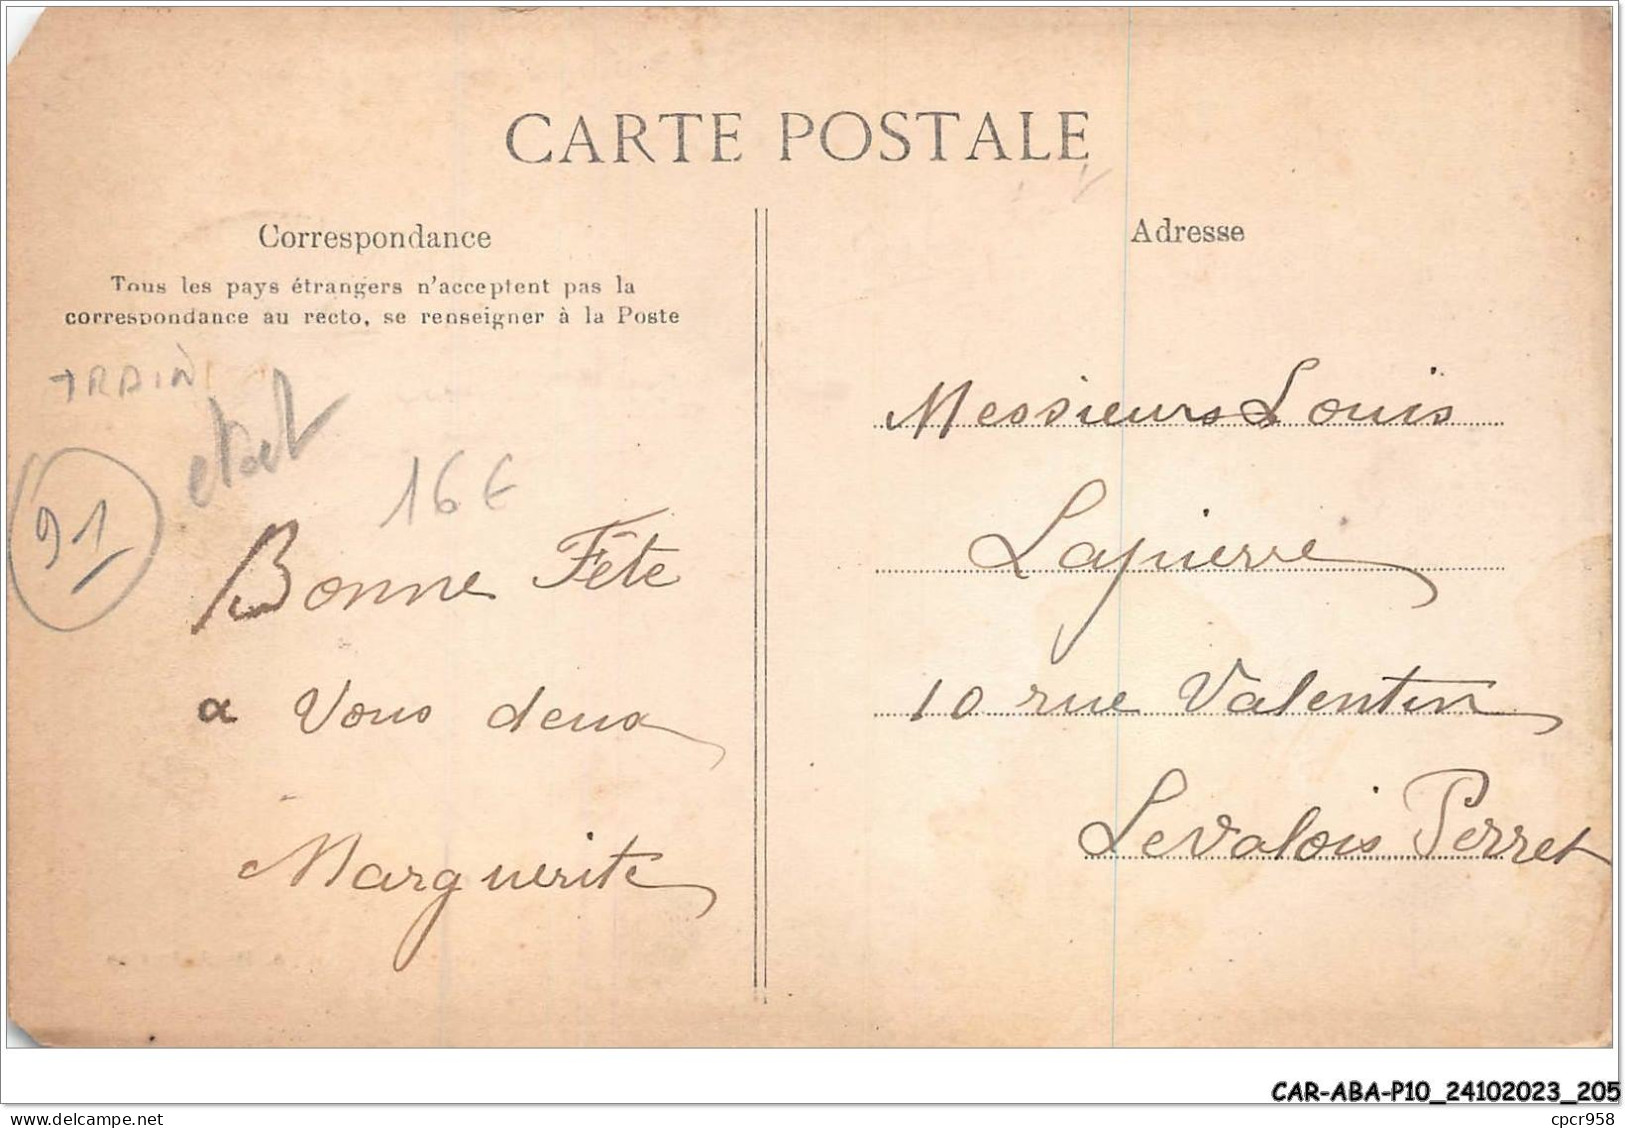 CARTE POSTALE
Correspondance
Tous les pays étrangers n'acceptent pas la
correspondance au recto, se renseigner à la Poste
TRAIN
etat
16€
91
Bonne Fête
a Vous deux
Marguerite
Adresse
Messieurs Louis
Lapierre
10 rue Valentin
Levalois Perret
CAR-ABA-P10_24102023_205
cpcr958